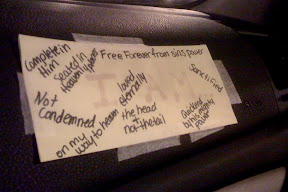 Complete in
Him
Seated in
heavenly places
Free Forever from sin's power
loved
eternally
Sanctified
Not
Condemned
on my
way to heaven
the head
+
not the tail
by his mighty
power